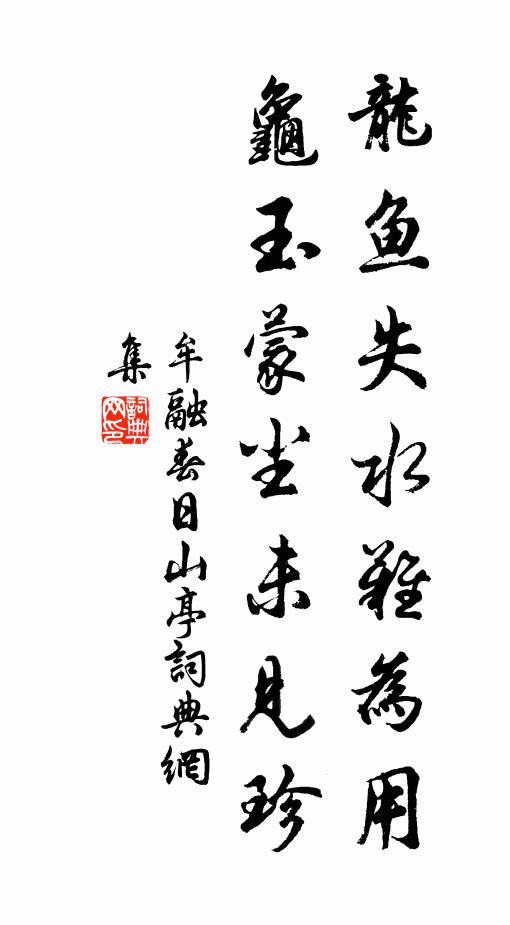 龍魚失水難為用
龜玉蒙尘未見珍
牟融春日山亭詞典網
集
詞典网印